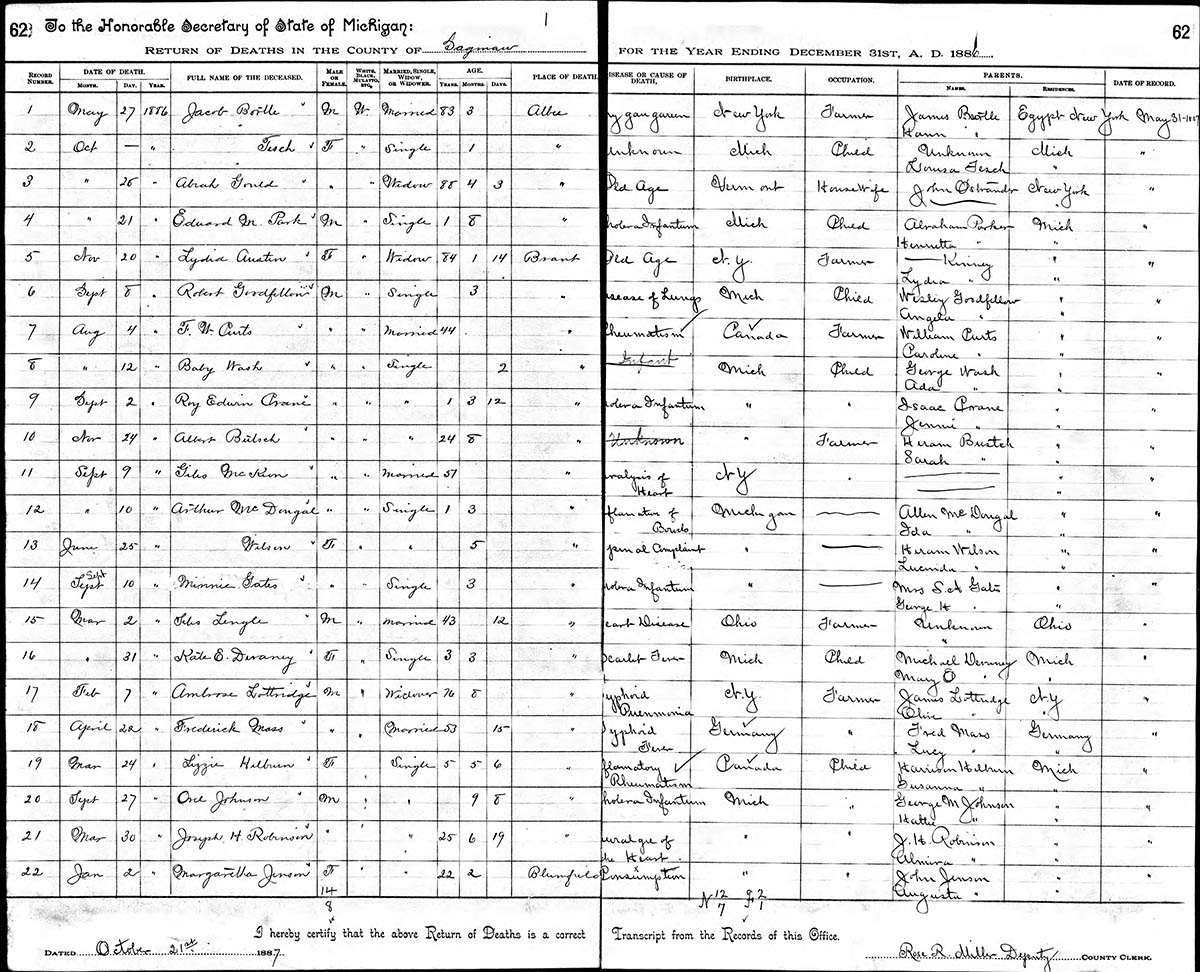 62
To the Honorable Secretary of State of Michigan:
1
62
Return of Deaths in the County of Saginaw for the Year Ending December 31st, A. D. 1886
Record Number. Date of Death. Month. Day. Year. Full Name of the Deceased. Male or Female. White, Black, Mulatto, etc. Married, Single, Widow, or Widower. Age. Years. Months. Days. Place of Death. Disease or Cause of Death. Birthplace. Occupation. Parents. Names. Residences. Date of Record.
1 May 27 1886 Jacob M W Married 83 3 Albee New York Farmer James Egypt New York May 31-1887
Hann "
2 Oct — " Tesch F " Single 1 " unknown Mich Child Unknown Mich "
Louisa Tesch "
3 " 25 " Abrah Gould " " Widow 88 4 3 " Old Age Vermont House Wife John Ostrander New York "
4 " 21 " Edward M. Park M " Single 1 8 " holera Infantum Mich Child Abraham Parker Mich "
Henrietta " "
5 Nov 20 " Lydia Austin F " Widow 84 1 14 Brant Old Age N.Y. Farmer — Kinney " "
Lydia "
6 Sept 8 " Robert Goodfellow M " Single 3 isease of Lungs Mich Child Wesley Goodfellow " "
Angela "
7 Aug 4 " F. W. Curts " " Married 44 " heumatism Canada Farmer William Curts " "
Caroline "
8 " 12 " Baby Wash " " Single 2 " Infant Mich Child George Wash " "
Ada "
9 Sept 2 " Roy Edwin Crane " " " 1 3 12 " olera Infantum " " Isaac Crane " "
Jennie "
10 Nov 24 " Albert " " " 24 8 " Unknown " Farmer Hiram " "
Sarah "
11 Sept 9 " Giles McKion " " Married 51 " aralysis of NY "
Heart
12 " 10 " Arthur McDongal " " Single 1 3 flamation of Michigan — Allen McDongal " "
Bowels Ida "
13 June 25 " Wilson F " " 5 " " — Hiram Wilson " "
Lucinda "
14 Sept Sept 10 " Minnie Gates " " Single 3 " olera Infantum " — Mrs S.A. Gates " "
George H "
15 Mar 2 " Silas Lengle M " Married 43 12 " eart Disease Ohio Farmer Unknown Ohio "
"
16 " 31 " Kate E. Devaney F " Single 3 3 " carlet Fever Mich Child Michael Devaney Mich "
Mary O "
17 Feb 7 " Ambrose Lottridge M " Widower 76 8 " yphoid N.Y Farmer James Lottridge N.Y "
Pneumonia Olive "
18 April 22 " Frederick Mass " " Married 53 15 " yphoid Germany " Fred Mass Germany "
Fever Lucy "
19 Mar 24 " Lizzie Hilburn F Single 5 5 6 " flamatory Canada Child Harrison Hilburn Mich "
Rheumatism Susanna "
20 Sept 27 " Orel Johnson M " " 9 8 " holera Infantum Mich " George M Johnson " "
Hattie "
21 Mar 30 " Joseph H. Robinson " " 25 6 19 " euralgie of " " J. H. Robinson " "
he Heart Almira "
22 Jan 2 " Margaretta Jenson F " " 22 2 Blumfield Consumption " " John Jenson " "
Augusta "
14
8
N 12/7 F 2/1
I hereby certify that the above Return of Deaths is a correct Transcript from the Records of this Office.
Dated October 21st 1887 Rose R. Miller Deputy County Clerk.